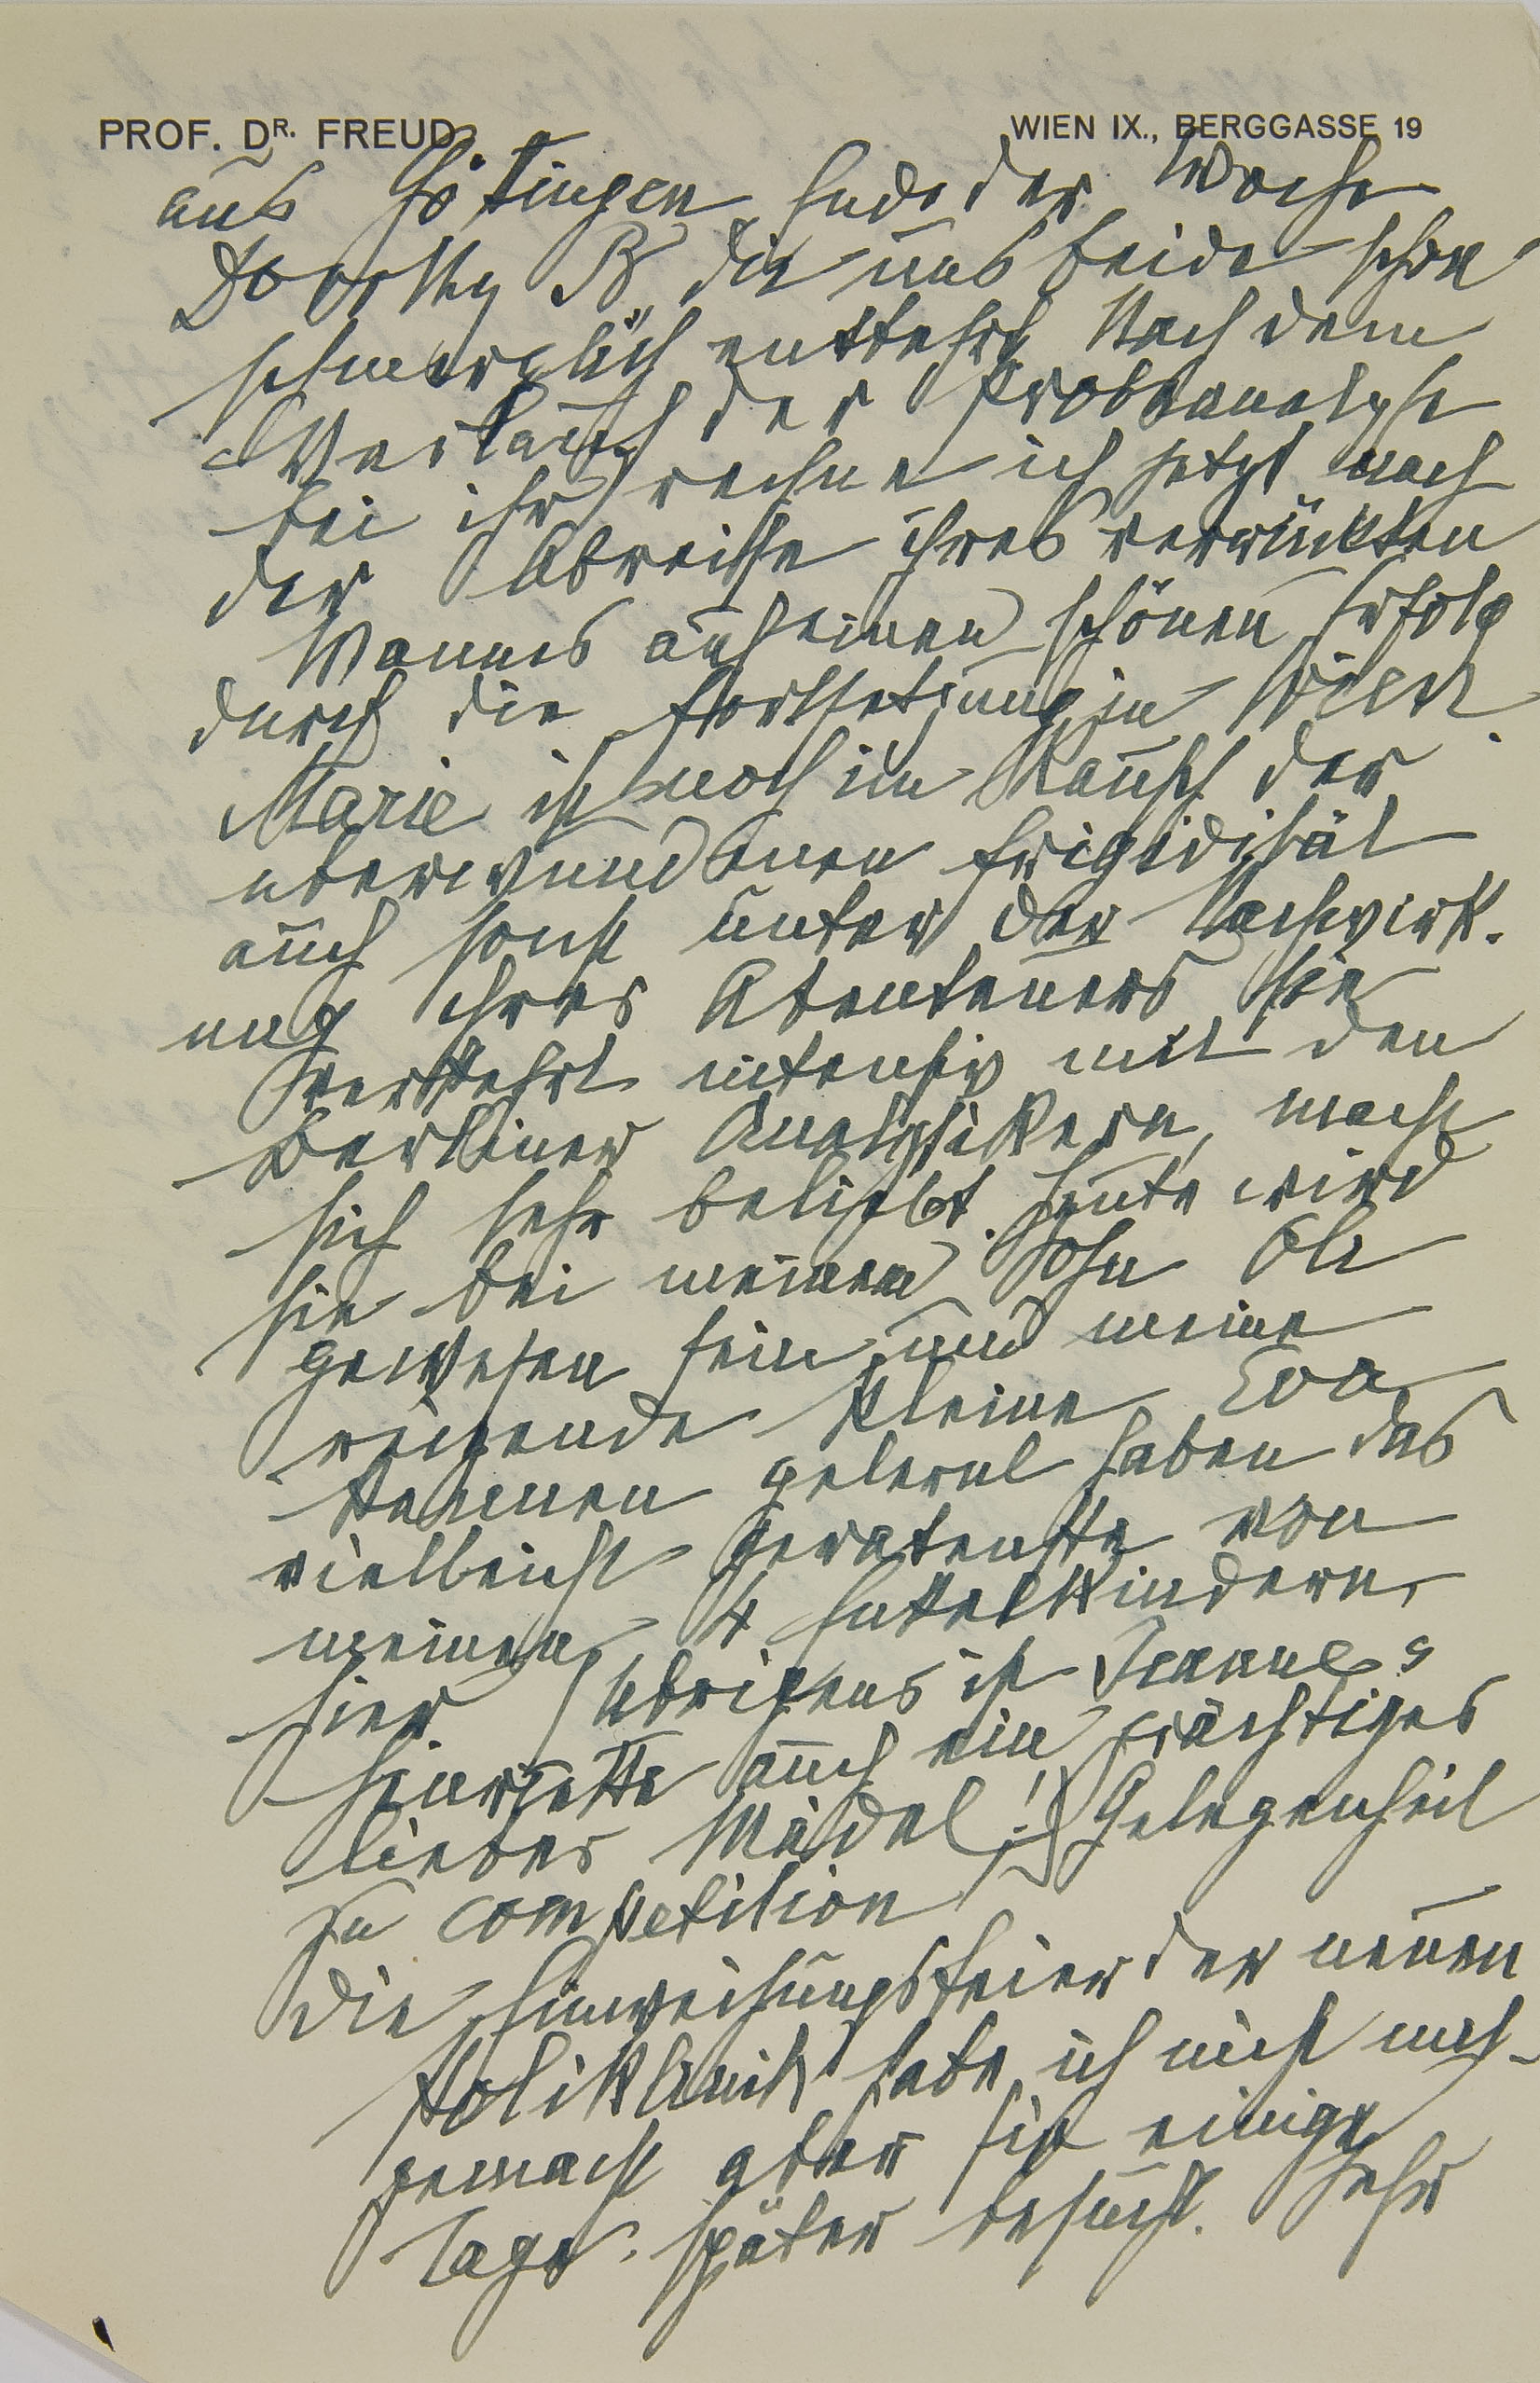 PROF. DR. FREUD WIEN IX., BERGGASSE 19
aus Göttingen, Ende der Woche
Dorothy B, die uns beide schon
schmerzlich entbehrt. Nach dem
Verlauf der Probeanalyse
bei ihr rechne ich jetzt nach
der Abreise ihres verrückten
Mannes auf einen schönen Erfolg
durch die Fortsetzung in Wien.
Marie ist noch im Kampf der
überwundenen Frigidität
auch sonst unter der Nachwirk-
ung ihres Abenteuers. Sie
verkehrt intensiv mit den
Berliner Analytikern, macht
sich sehr beliebt. Heute wird
sie bei meinem Sohn Oli
gewesen sein und meine
reizende kleine Eva
kennen gelernt haben das
vielleicht geratenste von
meinen 4 Enkelkindern
hier (Übrigens ist Jeannes
Henriette auch ein prächtiges
liebes Mädel!) Gelegenheit
zu competition
Die Einweihungsfeier der neuen
Poliklinik habe ich nicht mit-
gemacht aber sie einige
Tage später besucht. Sehr